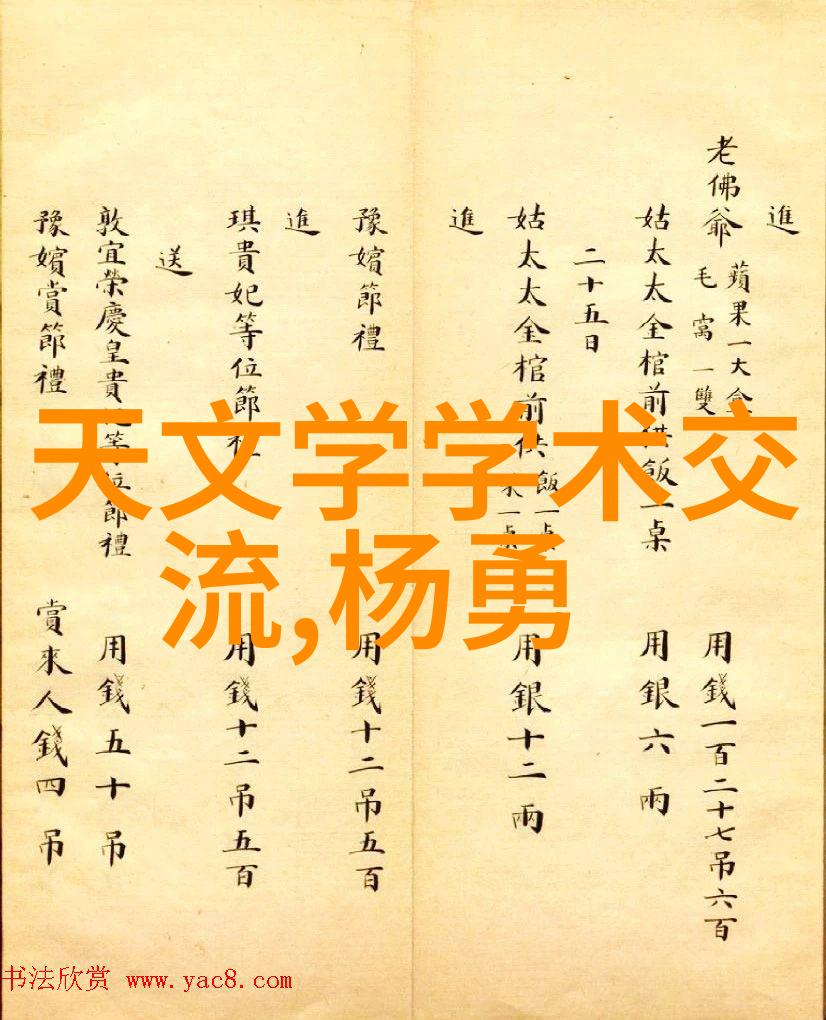 進
老佛爺 蘋果一大盒 毛窩一雙 用錢一百二十七吊六百
姑太太金棺前供飯一桌 用銀六兩
二十五日
姑太太金棺前供飯一桌 一桌 用銀十二兩
進
豫嬪節禮 用錢十二吊五百
進
琪貴妃等位節禮 用錢十二吊五百
送
敦宜榮慶皇貴妃等位節禮 用錢五十吊
豫嬪賞節禮 賞來人錢四吊
天文学学术交
流,杨勇
书法欣赏 www.yac8.com